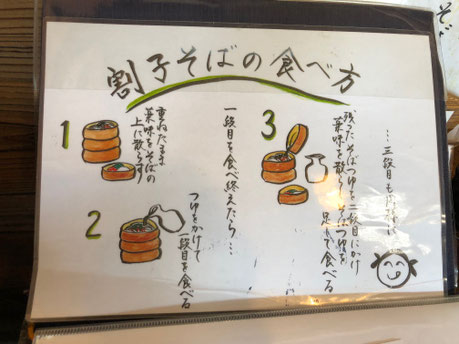 割子そばの食べ方
1
重ねたまま
薬味をそばの
上に散らす
2
つゆをかけて
一段目を食べる
一段目を食べ終えたら…
3
残ったそばつゆを二段目にかけ
薬味を散らしそばつゆを
足して食べる
…三段目も同様に